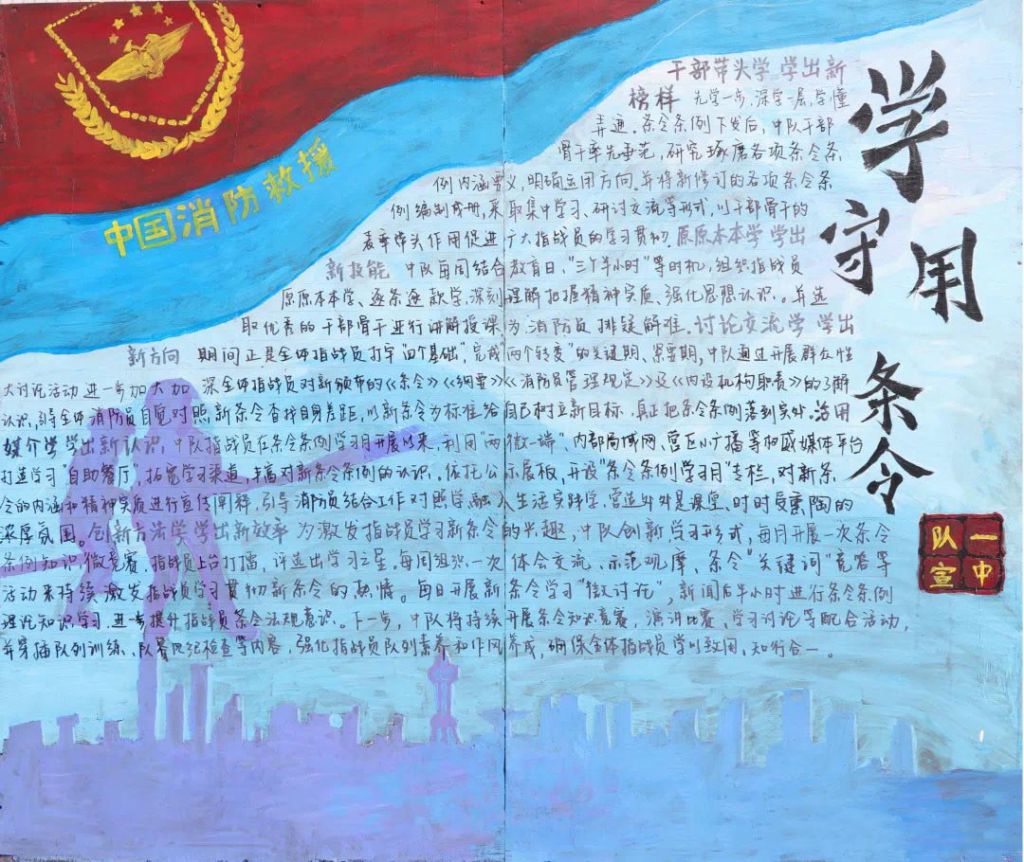 中国消防救援
学守用
条令
干部带头学 学出新
榜样 先学一步，深学一层，学懂
弄通。条令条例下发后，中队干部
骨干率先垂范，研究琢磨各项条令条
例内涵要义，明确运用方向。并将新修订的各项条令条
例编制成册，采取集中学习、研讨交流等形式，以干部骨干的
表率带头作用促进广大指战员的学习贯彻。原原本本学 学出
新技能 中队每周结合教育日、"三个半小时"等时机，组织指战员
原原本本学、逐条逐款学，深刻理解把握精神实质、强化思想认识。并选
取优秀的干部骨干进行讲解授课为消防员排疑解难。讨论交流学 学出
新方向 期间正是全体指战员打牢"四个基础"，完成"两个转变"的关键期、紧要期，中队通过开展群众性
大讨论活动进一步加大加深全体指战员对新颁布的《条令》《纲要》《消防员管理规定》及《内设机构职责》的了解
认识，引导全体消防员自觉对照新条令查找自身差距，以新条令为标准给自己树立新目标，真正把条令条例落到实处。活用
媒介学 学出新认识 中队指战员在条令条例学习月开展以来，利用"两微一端"、内部局域网、营区小广播等权威媒体平台
打造学习"自助餐厅"，拓宽学习渠道，丰富对新条令条例的认识。依托公示展板，开设"条令条例学习月"专栏，对新条
令的内涵和精神实质进行宣传阐释，引导消防员结合工作对照学，融入生活实践学，营造处处是课堂、时时受熏陶的
浓厚氛围。创新方法学 学出新效率 为激发指战员学习新条令的兴趣，中队创新学习形式，每月开展一次条令
条例知识微竞赛，指战员上台打擂，评选出学习之星，每周组织一次体会交流、示范观摩、条令"关键词"竞答等
活动来持续激发指战员学习贯彻新条令的热情。每日开展新条令学习"微讨论"，新闻后半小时进行条令条例
理论知识学习，进一步提升指战员条令法规意识。下一步，中队将持续开展条令知识竞赛、演讲比赛、学习讨论等配合活动，
并穿插队列训练、队容风纪检查等内容，强化指战员队列素养和作风养成，确保全体指战员学以致用、知行合一。
队一
宣中